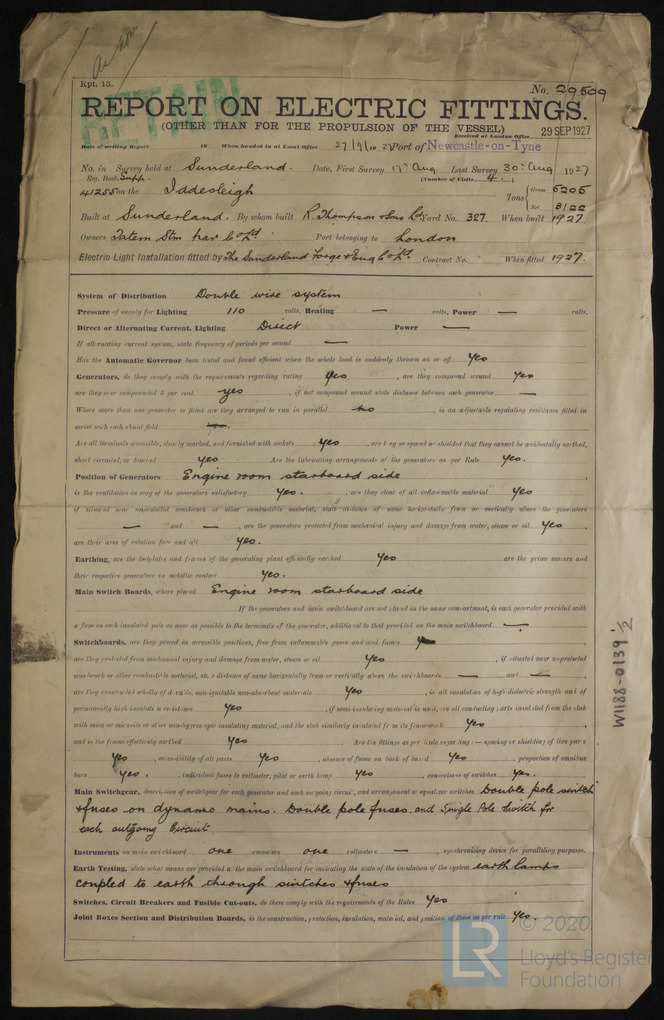 Rpt. 13.
No. 29509
RETAIN
REPORT ON ELECTRIC FITTINGS.
(OTHER THAN FOR THE PROPULSION OF THE VESSEL)
Received at London Office 29 SEP 1927
Date of writing Report 19 When handed in at Local Office 27/9/19 27 Port of Newcastle-on-Tyne
No. in Survey held at Sunderland. Date, First Survey 17th Aug. Last Survey 30th Aug 1927
Reg. Book. Supp. (Number of Visits 4.)
41255 on the Iddesleigh Tons Gross 5205
Net 3122
Built at Sunderland. By whom built R. Thompson & Sons Ld Yard No. 327. When built 1927.
Owners Tatem Stm Nav Co Ld. Port belonging to London
Electric Light Installation fitted by The Sunderland Forge & Eng Co Ld. Contract No. When fitted 1927.
System of Distribution Double wire system
Pressure of supply for Lighting 110 volts, Heating — volts, Power — volts.
Direct or Alternating Current, Lighting Direct Power —
If alternating current system, state frequency of periods per second —
Has the Automatic Governor been tested and found efficient when the whole load is suddenly thrown on or off Yes
Generators, do they comply with the requirements regarding rating Yes , are they compound wound Yes
are they over compounded 5 per cent yes , if not compound wound state distance between each generator —
Where more than one generator is fitted are they arranged to run in parallel no , is an adjustable regulating resistance fitted in
series with each shunt field
Are all terminals accessible, clearly marked, and furnished with sockets Yes , are they so spaced or shielded that they cannot be accidentally earthed,
short circuited, or touched Yes Are the lubricating arrangements of the generators as per Rule Yes.
Position of Generators Engine room starboard side
is the ventilation in way of the generators satisfactory Yes. , are they clear of all inflammable material Yes
if situated near unprotected woodwork or other combustible material, state distance of same horizontally from or vertically above the generators
— and — , are the generators protected from mechanical injury and damage from water, steam or oil Yes
are their axes of rotation fore and aft Yes.
Earthing, are the bedplates and frames of the generating plant efficiently earthed Yes are the prime movers and
their respective generators in metallic contact Yes.
Main Switch Boards, where placed Engine room starboard side
If the generators and main switchboard are not placed in the same compartment, is each generator provided with
a fuse on each insulated pole as near as possible to the terminals of the generator, additional to that provided on the main switchboard —
Switchboards, are they placed in accessible positions, free from inflammable gases and acid fumes
are they protected from mechanical injury and damage from water, steam or oil Yes , if situated near unprotected
woodwork or other combustible material, state distance of same horizontally from or vertically above the switchboards — and —
are they constructed wholly of durable, non-ignitable non-absorbent materials Yes , is all insulation of high dielectric strength and of
permanently high insulation resistance Yes , if semi-insulating material is used, are all conducting parts insulated from the slab
with mica or micanite or other non-hygroscopic insulating material, and the slab similarly insulated from its framework Yes
and is the frame effectively earthed Yes . Are the fittings as per rule regarding:— spacing or shielding of live parts
Yes , accessibility of all parts Yes , absence of fuses on back of board Yes , proportion of omnibus
bars Yes. , individual fuses to voltmeter, pilot or earth lamp Yes , connections of switches Yes.
Main Switchgear, description of switchgear for each generator and each outgoing circuit, and arrangement of equalizer switches Double pole switch
& fuses on dynamo mains. Double pole fuses and Single Pole Switch for
each outgoing Circuit.
Instruments on main switchboard one ammeters one voltmeters — synchronising device for paralleling purposes.
Earth Testing, state what means are provided at the main switchboard for indicating the state of the insulation of the system earth lamps
coupled to earth through switches & fuses
Switches, Circuit Breakers and Fusible Cut-outs, do these comply with the requirements of the Rules Yes
Joint Boxes Section and Distribution Boards, is the construction, protection, insulation, material, and position of these as per rule Yes.
W1188-0139 1/2
© 2020
LR
Lloyd's Register
Foundation